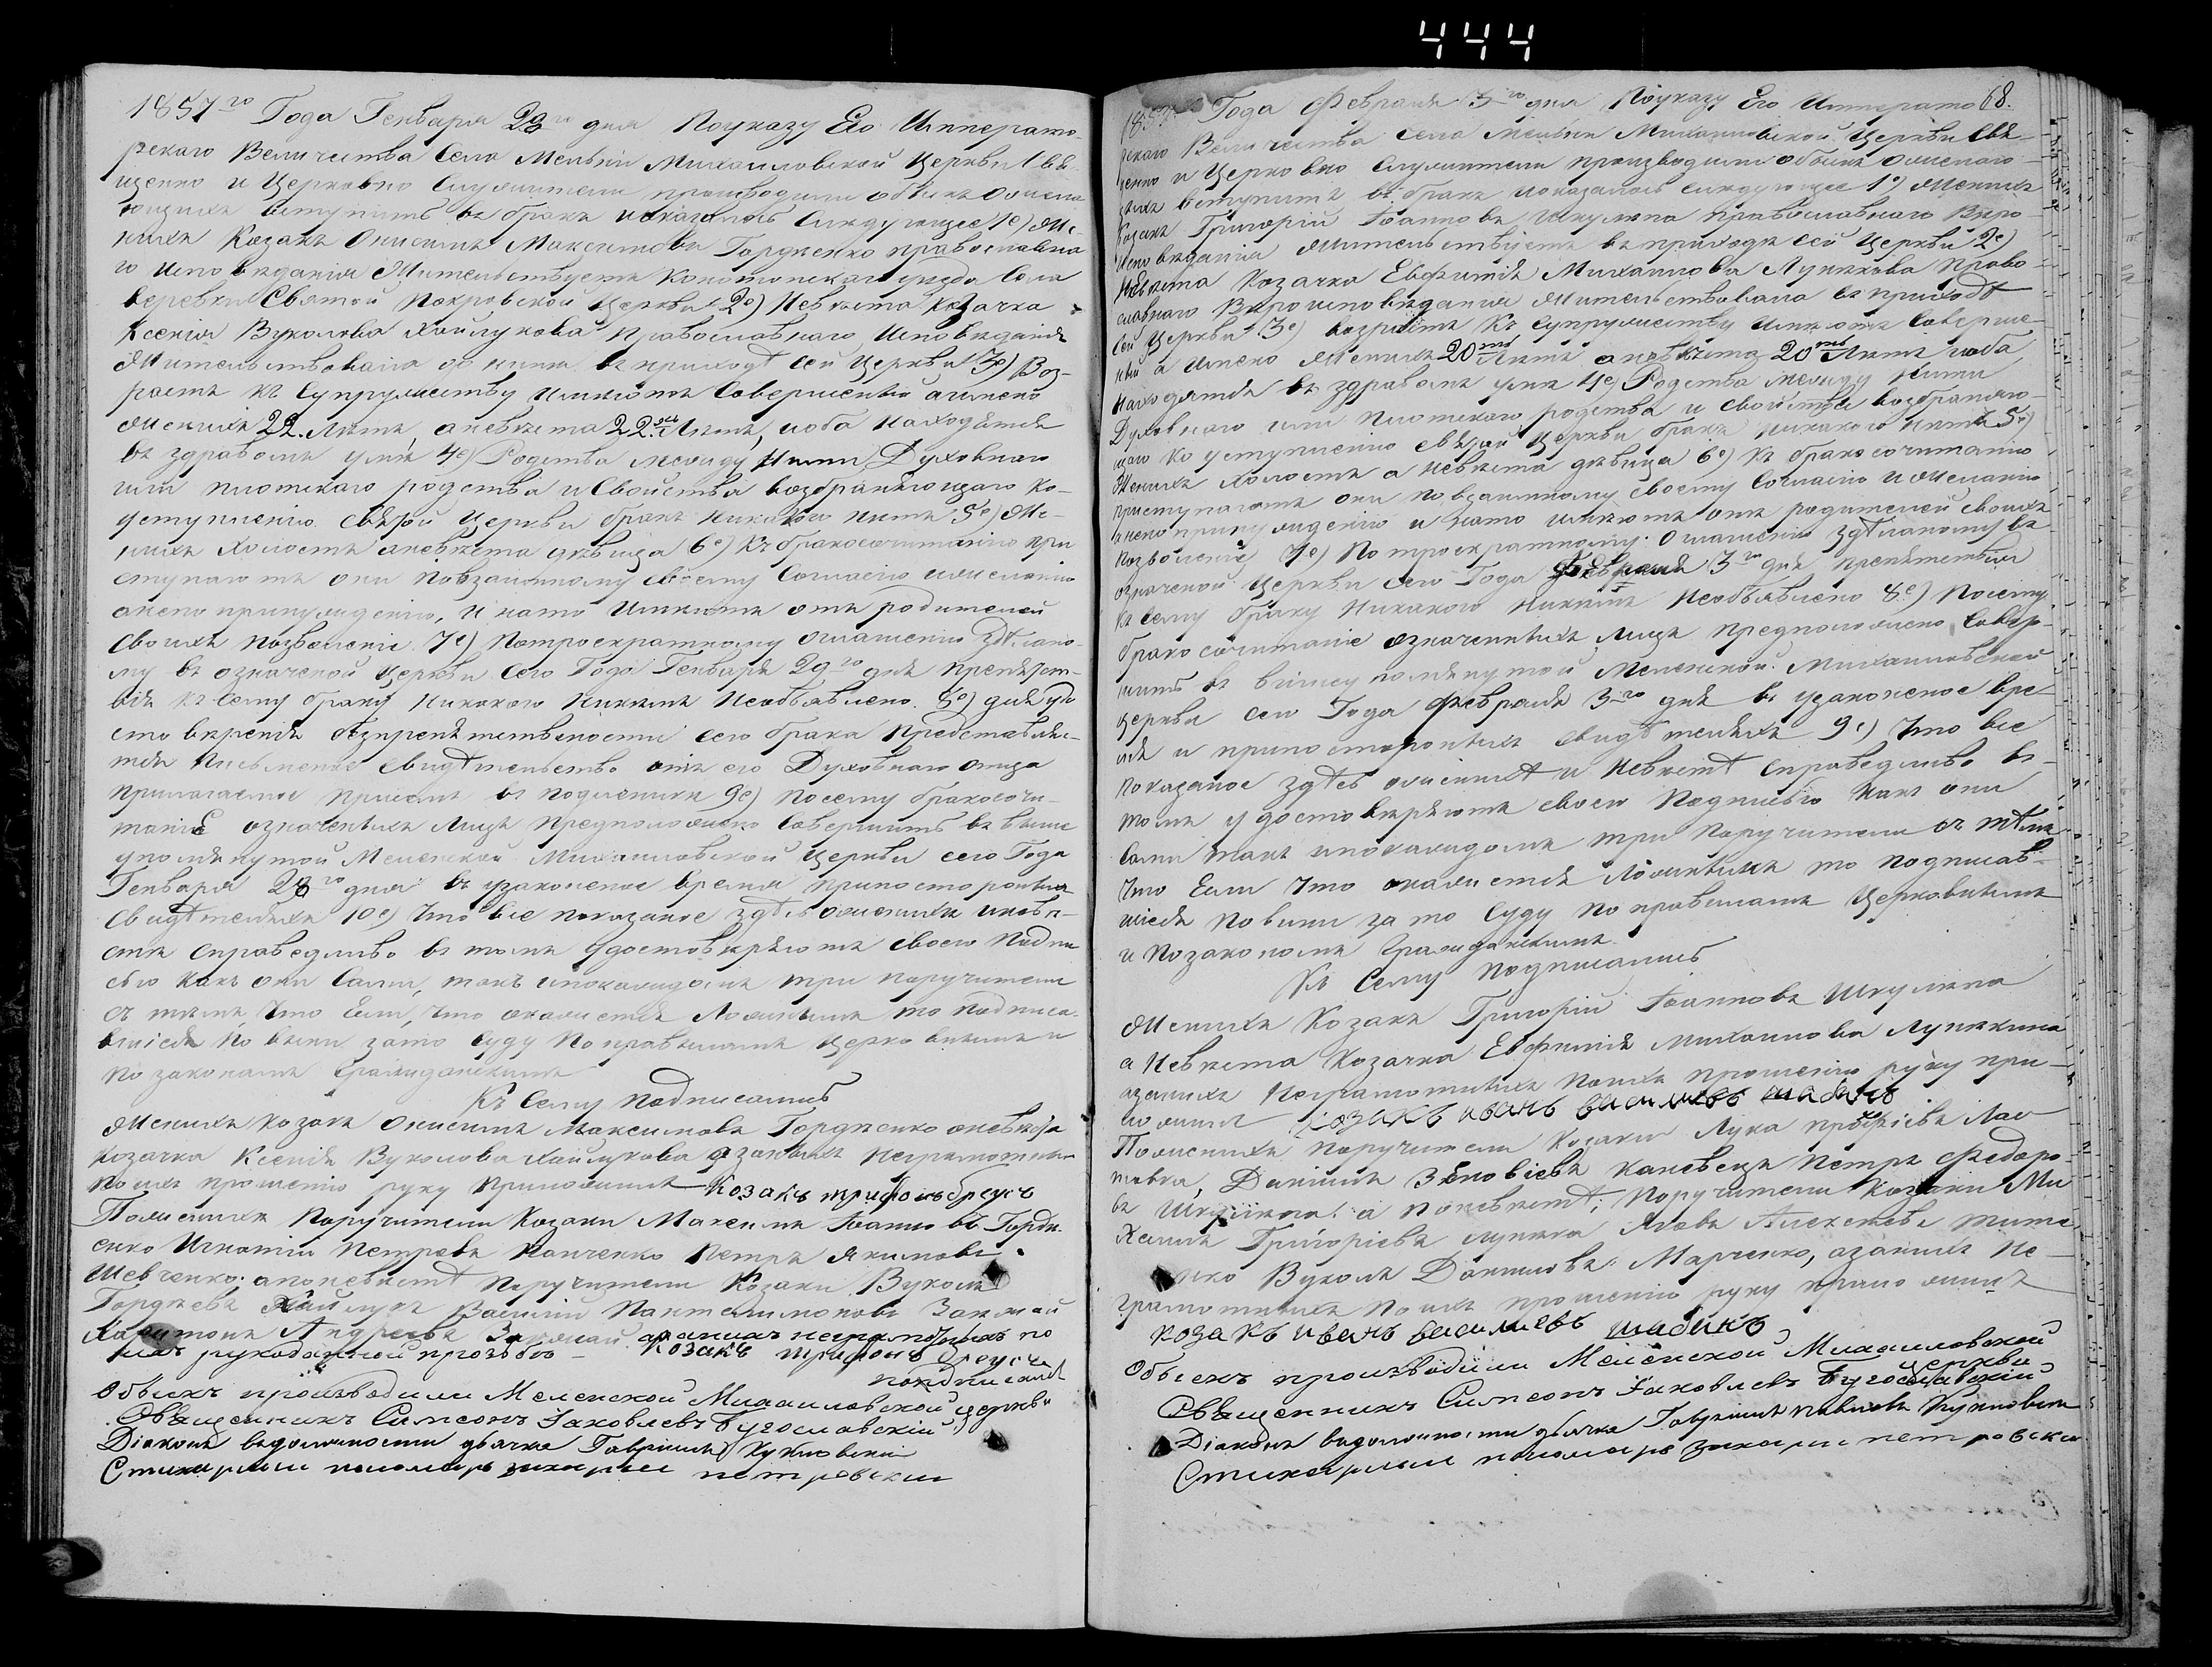 444
1857го Года Генваря 29го дня По указу Его Императо-
рскаго Величества Села Мельни Михаиловской Церкви Свя-
щенно и Церковно Служители производили обыск о жела
ющих вступить въ бракъ и оказалось следующее 1е) Же-
нихъ Козакъ Онисимъ Максимовъ Гордѣенко православна
го Исповѣданія Жительствуетъ Конотопскаго уезда Села
Веревки Святой Покровской Церкви 2е) Невѣста Козачка
Ксенія Вуколова Хайлукова Православнаго Исповѣданія
Жительствовала до нынѣ въ приходѣ сей Церкви 3е) Воз-
растъ къ Супружеству имѣютъ Совершенный а имено
Женихъ 22. Лѣтъ, а невѣста 22. Лѣтъ, и оба находятся
въ здравомъ умѣ 4е) Родства между Ними Духовнаго
или плотскаго родства и Свойства возбраняющаго ко-
уступленію Святой Церкви бракъ никакого нѣтъ 5е) Же-
нихъ холостъ а невѣста дѣвица 6е) Къ бракосочитанію при
ступаютъ они по взаимному своему Согласію и желанію
а не по принужденію, и на то имѣютъ отъ родителей
своихъ позволеніе 7е) По троекратному оглашенію здѣлано-
му въ означеной Церкви сего Года Генваря 29го дня препятст-
вія къ сему браку никакого никемъ необъявлено. 8е) для удо
стовѣренія безпрепятственности сего брака Представляе-
тся письменое свидѣтельство отъ его Духовнаго отца
прилагаемое при семъ въ подлинике 9е) по сему бракосочи-
таніе означенныхъ лицъ предположено Совершить въ выше
упомянутой Меленской Михаиловской Церкви сего Года
Генваря 28го дня въ узаконеное время при посторонныхъ
свидѣтеляхъ 10е) Что все показаное здѣсь о женихе и невѣ-
сте справедливо въ томъ удостовѣряютъ своею Подпи
сью какъ они Сами, такъ и по каждомъ три поручители
съ тѣмъ, что Если, что окажется Ложнымъ то подписа-
вшіеся повины за то суду по правиламъ Церковнымъ и
по законамъ Гражданскимъ
Къ Сему Подписались
Женихъ Козакъ Онисимъ Максимовъ Гордѣенко а невѣста
козачка Ксенія Вуколова Хайлукова а за нихъ неграмотныхъ
по ихъ прошенію руку приложилъ Козакъ трифонъ бреусъ
По женихе Поручители Козаки Максимъ Іоанновъ Горде-
енко Игнатій Петровъ Ткаченко Петръ Якимовъ
Шевченко: а по невѣсте поручители Козаки Вуколъ
Гордѣевъ Хайлукъ Василій Пантелимоновъ Закожай
Харитонъ Андреевъ Закожай а за нихъ неграмотныхъ по
ихъ рукоданной прозьбѣ Козакъ трифонъ бреусъ
подписался
Обыскъ производили Меленской Михаиловской церкви
Священникъ Симеонъ Іаковлевъ Бугославскій
Діаконъ въ должности дьячка Гавріилъ Кукловскій
Стихарный пономарь захарій петровскій
68.
1857го Года Февраля 3го дня По указу Его Императо
рскаго Величества села Мельни Михаиловской Церкви Свя-
щенно и Церковно Служители производили обыскъ о желаю-
щихъ вступить въ бракъ и оказалось следующее 1е) Женихъ
Козакъ Григорій Іоанновъ Шкулипа православнаго Вѣро-
исповѣданія Жительствуетъ въ приходе сей Церкви 2е)
Невѣста Козачка Евфимія Михаилова Лупѣкова право-
славнаго Вѣроисповѣданія Жительствовала въ приходѣ
сей Церкви 3е) возрастъ къ Супружеству имѣютъ Соверше-
нный а имено Женихъ 20ть Лѣтъ а невѣста 20ть Лѣтъ и оба
находятся въ здравомъ умѣ 4е) Родства между Ними
Духовнаго или плотскаго родства и свойства возбраняю-
щаго ко уступленію святой Церкви бракъ никакого нѣтъ 5е)
Женихъ холостъ а невѣста дѣвица 6е) къ бракосочитанію
приступаютъ они по взаимному своему Согласію и желанію
а не по принужденію и на то имѣютъ отъ родителей своихъ
позволеніе 7е) По троекратному оглашенію здѣланому въ
означеной Церкви сего Года Февраля 3го дня препятствія
къ сему браку никакого никѣмъ необъявлено 8е) Посему
бракосочитаніе означенныхъ лицъ предположено Совер-
шить въ вышеупомянутой Меленской Михаиловской
церкви сего Года Февраля 3го дня въ узаконеное вре-
мя и при постороныхъ свидѣтеляхъ 9е) Что все
показаное здѣсь о женихѣ и невѣстѣ справедливо въ
томъ удостовѣряютъ своею подписью какъ они
сами такъ и по каждомъ три поручители съ тѣмъ
что Если что окажется Ложнымъ то подписав-
шіеся повины за то суду по правиламъ Церковнымъ
и по законамъ Гражданскимъ.
Къ Сему подписались
Женихъ Козакъ Григорій Іоанновъ Шкулипа
а Невѣста Козачка Евфимія Михаилова Лупѣкина
а за нихъ неграмотныхъ по ихъ прошенію руку при-
ложилъ козакъ иванъ василиевъ шабикъ
По женихе поручители Козаки Лука
Даніилъ Зѣновіевъ Каневецъ Петръ Федоро-
въ Шкулипа: а по невѣстѣ; поручители Козаки Ми
хаилъ Григоріевъ Лупѣка Яковъ Алексѣевъ Тите-
нко Вуколъ Даниловъ Марченко, а за нихъ не-
грамотныхъ по ихъ прошенію руку приложилъ
козакъ иванъ василиевъ шабикъ
Обыскъ производили Меленской Михаиловской
церкви
Священникъ Симеонъ Іаковлевъ Бугославскій
Діаконъ въ должности дьячка Гавріилъ Павловъ Кукловскій
Стихарный пономарь захарій петровскій